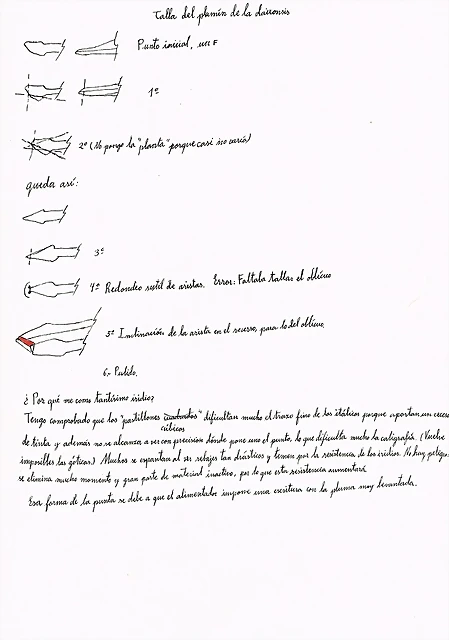 Talla del plumín de la dairensis
Punto inicial, un F
1º
2º (No pongo la "planta" porque casi no varía)
queda así:
3º
4º Redondeo sutil de aristas. Error: Faltaba tallar el oblicuo
5º Inclinación de la arista en el reverso, para lo del oblicuo.
6.- Pulido.
¿Por qué me como tantísimo iridio?
Tengo comprobado que los "pastillones cuadrados" dificultan mucho el trazo fino de los itálicos porque aportan un exceso
cúbicos
de tinta y además no se alcanza a ver con precisión dónde pone uno el punto, lo que dificulta mucho la caligrafía. (Vuelve
imposibles las góticas.) Muchos se espantan al ver rebajes tan drásticos y temen por la resistencia de los iridios. No hay peligro:
se elimina mucho momento y gran parte de material inactivo, por lo que esta resistencia aumentará
Esa forma de la punta se debe a que el alimentador impone una escritura con la pluma muy levantada.